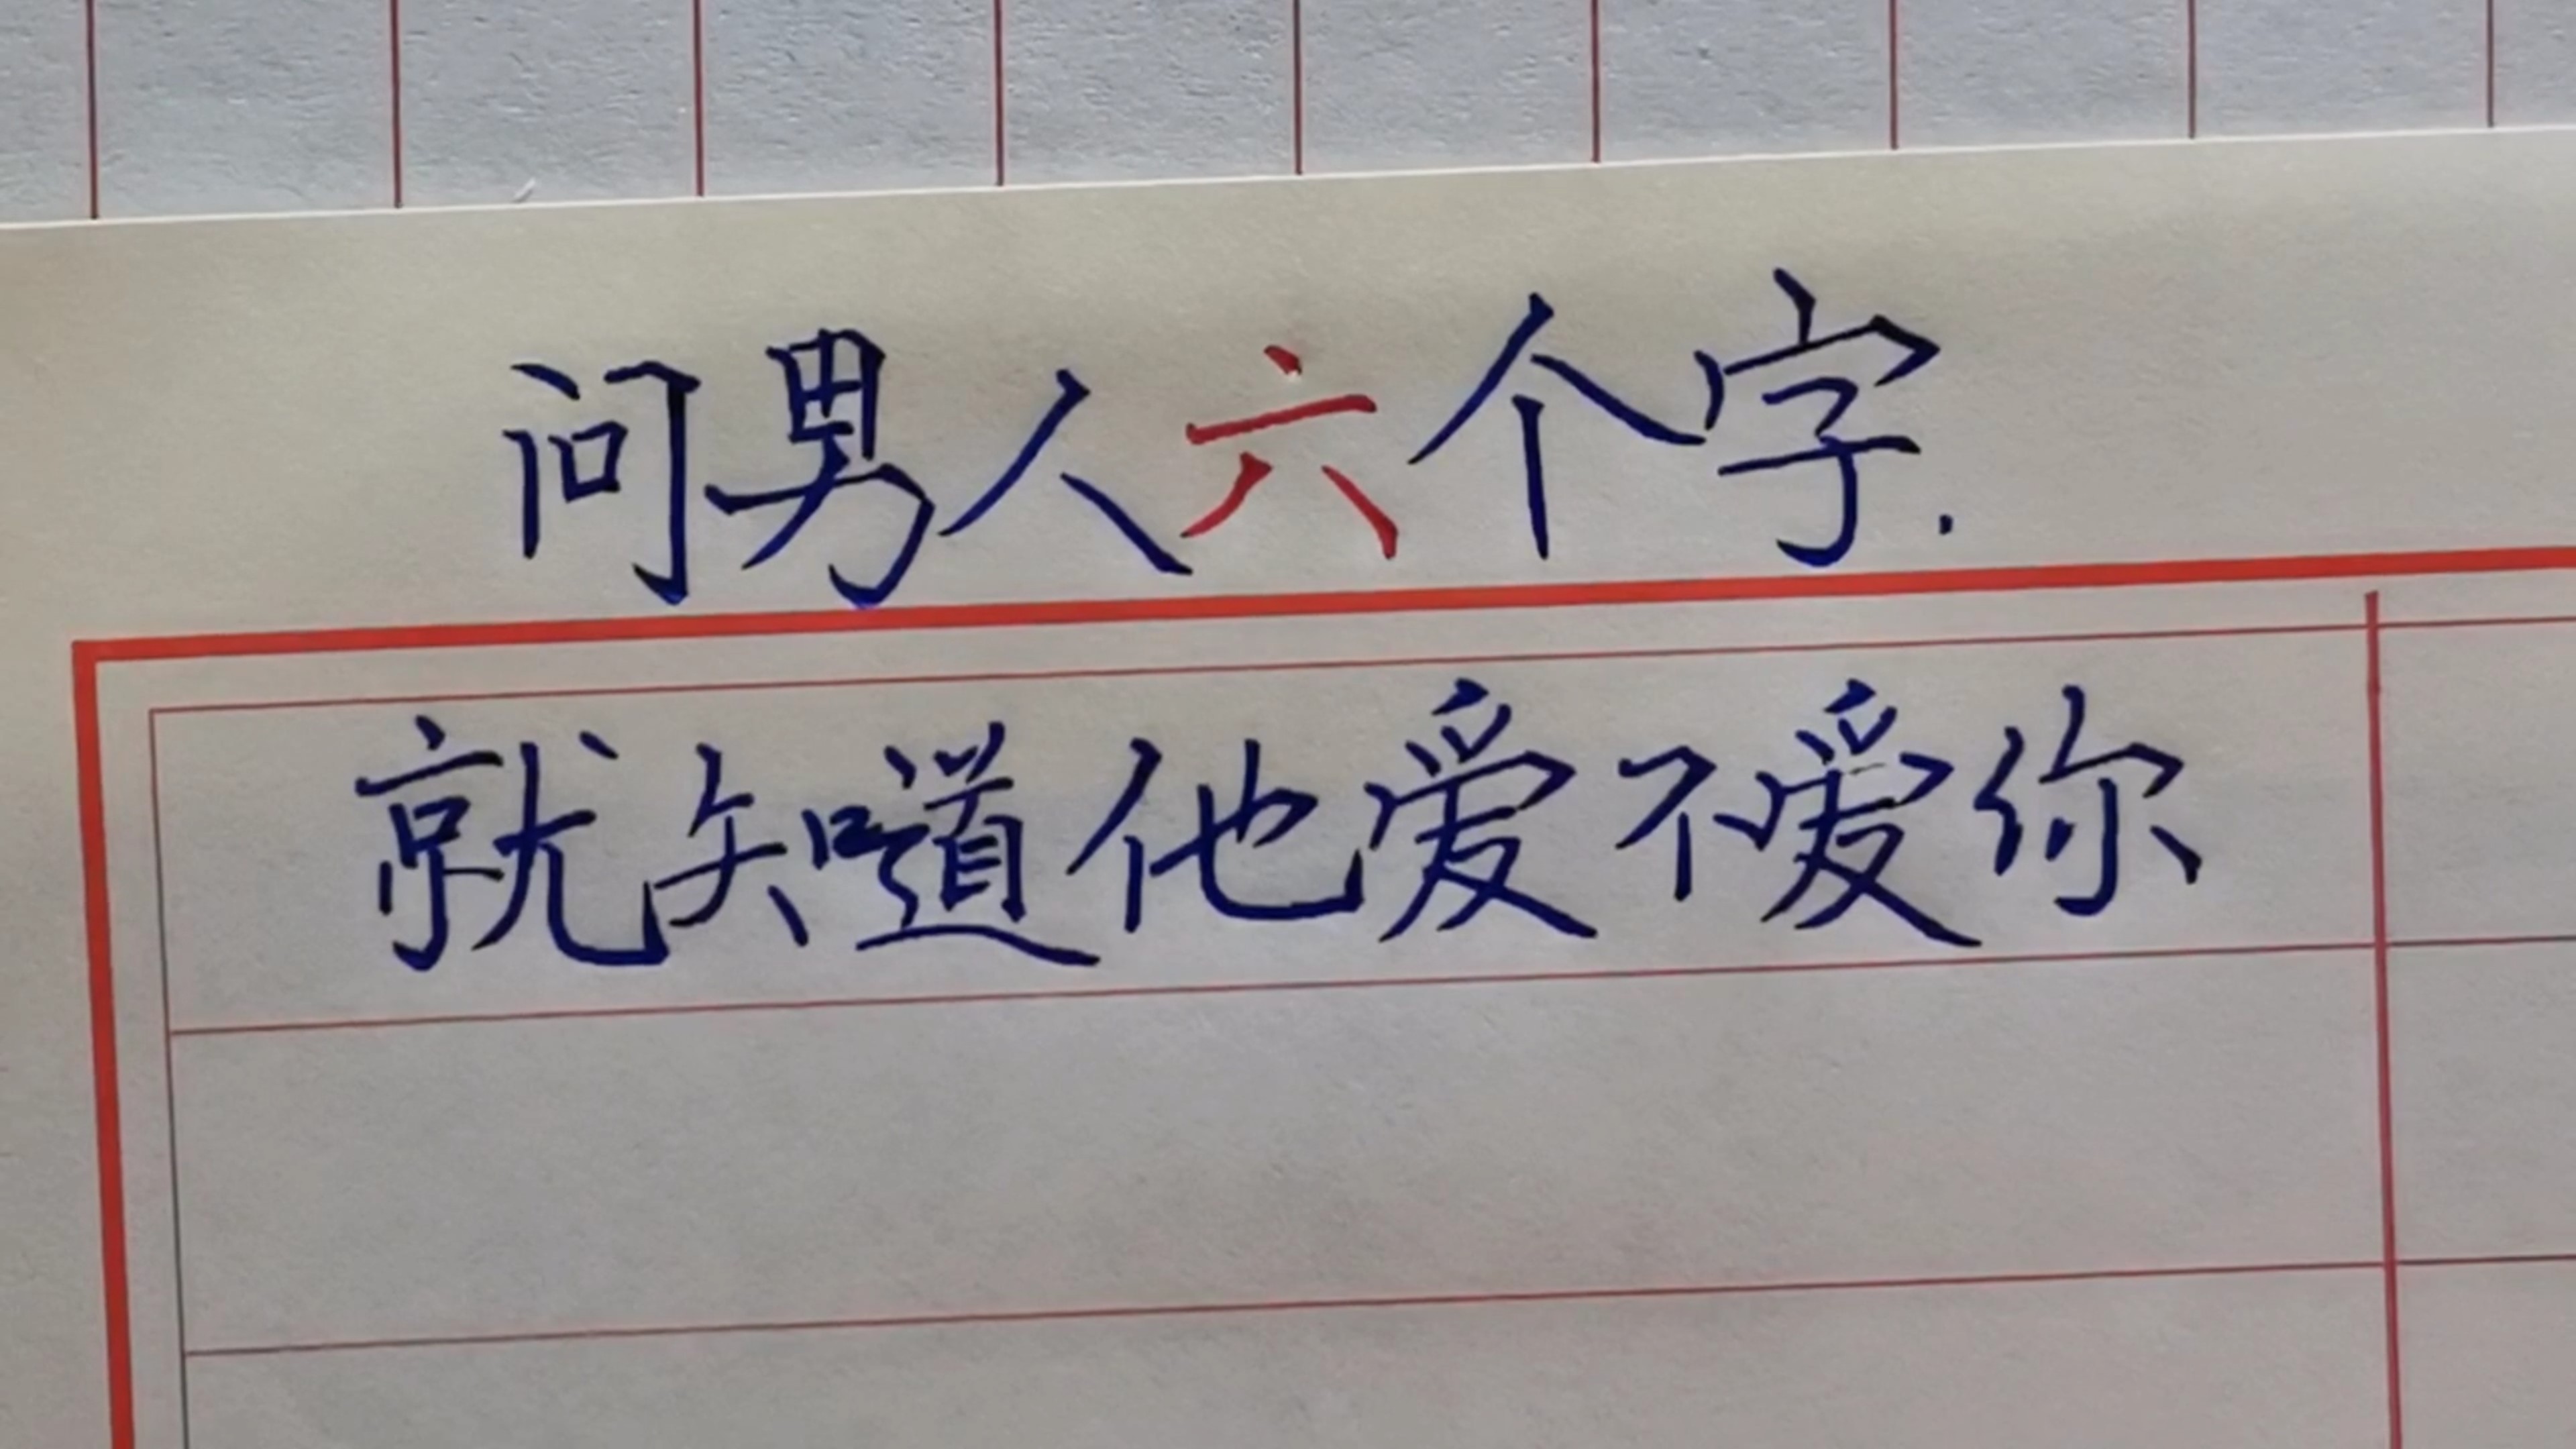 问男人六个字.
就知道他爱不爱你